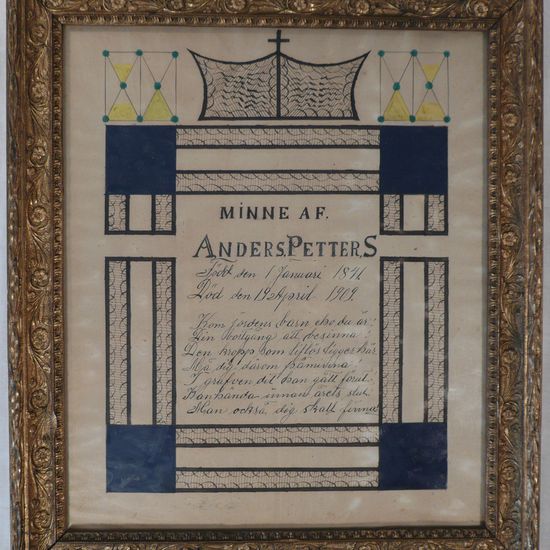 MINNE AF.
ANDERS PETTER,S
Född den 1 Januari 1841
Död den 19 April 1909.
Kom jordens barn eho du är!
Din bortgång att besinna!
Den kropp som liflös ligger här
Må dig därom påminna!
I grafven dit han gått förut.
Kanhända innan årets slut.
Man också dig skall finna